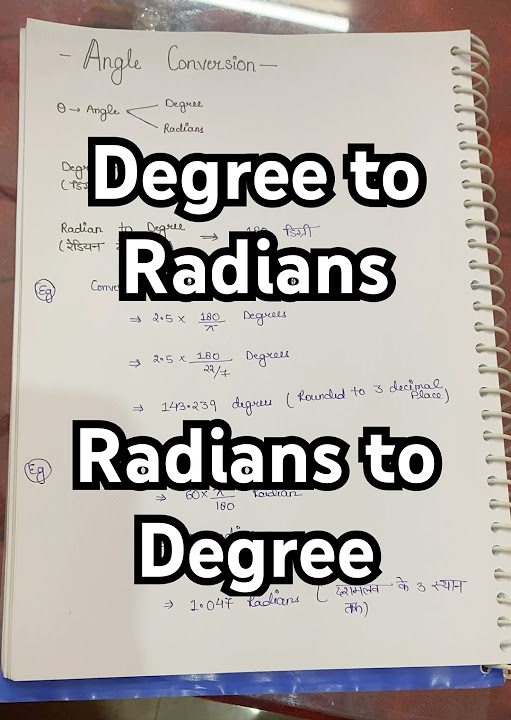 - Angle Conversion -
θ → Angle
Degree
Radians
Degree to
Radian to Degree ⇒ 180 डिग्री
(रेडियन
Radians
Eg
⇒ 2.5 × 180/π Degrees
⇒ 2.5 × 180/22/7 Degrees
⇒ 143.239 degrees (Rounded to 3 decimal Place)
Radians to
Eg
⇒ 60 × π/180 Radian
Degree
⇒ 1.047 Radians (दशमलव के 3 स्थान
तक)